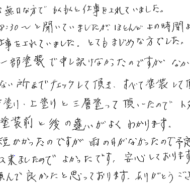 無口な方で 私 私と仕事をされていました。
8:30〜と聞いていましたが ほとんどの時間
仕事をされていました。とてもまじめな方でした。
一部塗装で申し訳なかったのですが なか
ない所までチェックして頂き、すべて塗装して頂
下塗り・上塗りと三層塗って頂いたので
塗装前と後の違いがよくわかります。
立かったのですが 雨の日がなかったので予定
出来ましたので よかったです。安心しております
頼んで良かったと思っております。ありがとうご